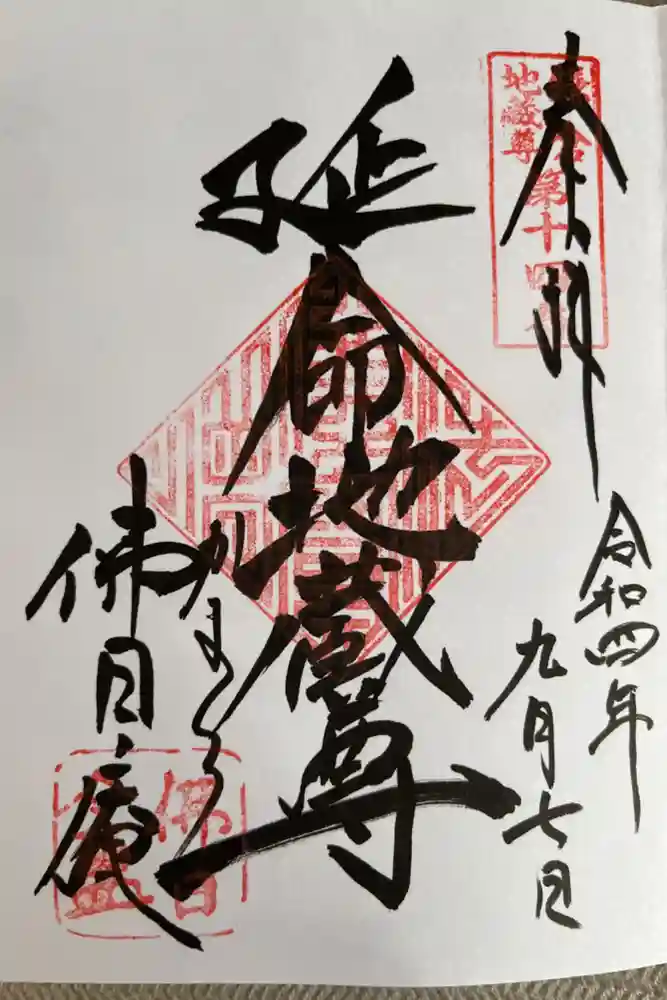 奉拝
第十四
地蔵尊
令和四年
九月七日
延命地蔵尊
かまくら
佛日庵
佛日